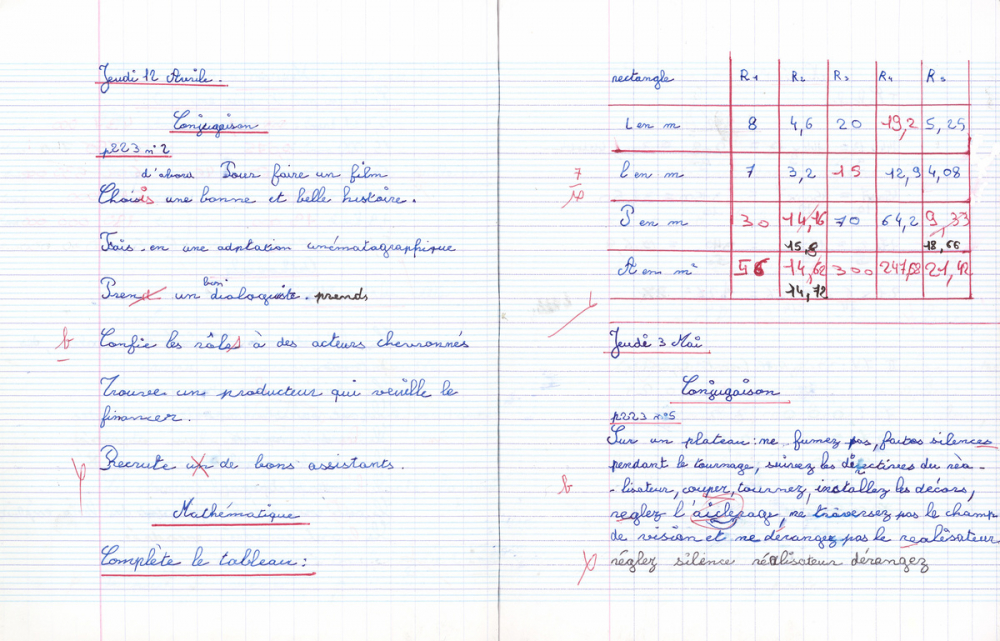 Jeudi 12 Avrile.
Conjugaison
p223 n°2
d'abord Pour faire un film
Choisis une bonne et belle histoire.
Fais-en une adptation cinématographique
Prend un bon dialoguiste. prends
b Confie les rôles à des acteurs chevronnés
Trouve un producteur qui veuille le
financer.
Recrute un de bons assistants.
Mathématique
Complète le tableau:
rectangle R1 R2 R3 R4 R5
L en m 8 4,6 20 19,2 5,25
l en m 7 3,2 15 12,9 4,08
P en m 30 14,16 70 64,2 9,33
15,6 18,66
A en m² 56 14,62 300 247,68 21,42
14,72
Jeudi 3 Mai
Conjugaison
p223 n°5
Sur un plateau: ne fumez pas, faites silences
pendant le tournage, suivez les directives du réa-
b -lisateur, coupez, tournez, installez les décors,
reglez l'aiclerage, ne traversez pas le champ
de vision et ne dérangez pas le realisateur
réglez silence réalisateur dérangez